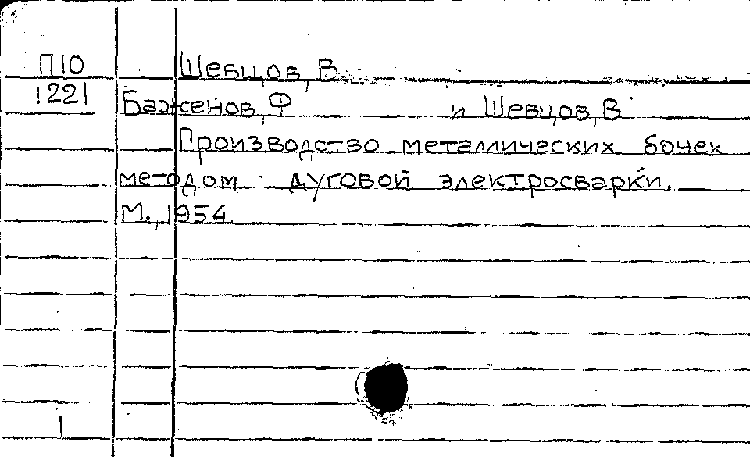 П10
1221
Шевцов, В.
Баженов, Ф и Шевцов, В
Производство металлических бочек
методом дуговой электросварки.
М., 1954.
1